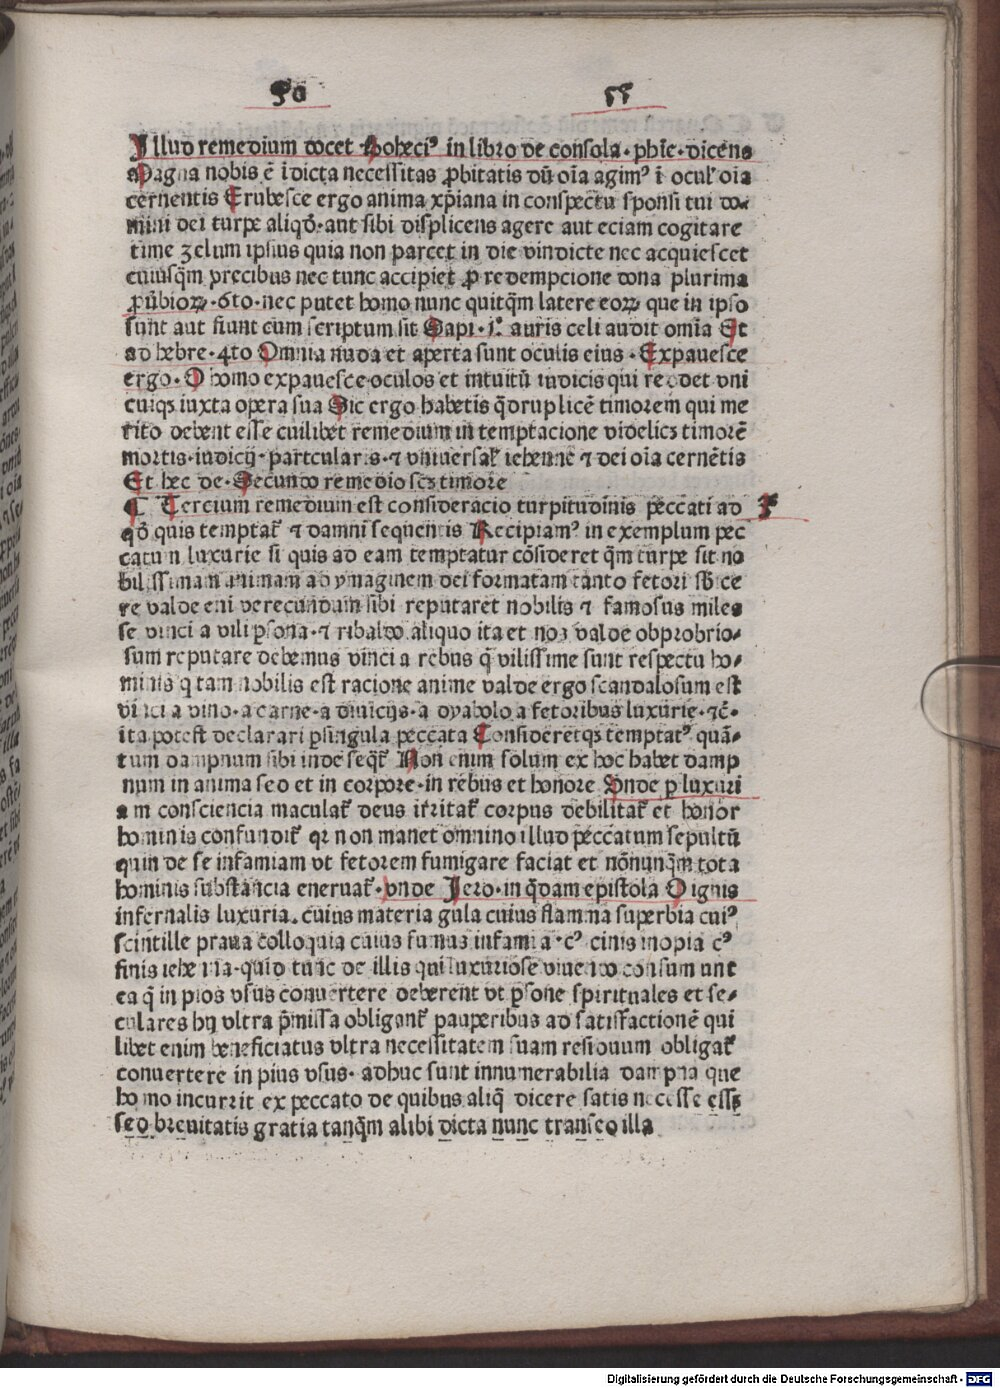 50 55
Illud remedium docet Boheciꝰ in libro de consola · phīe · dicens
Magna nobis ē īdicta necessitas ꝓbitatis dū oīa agimꝰ ī ocul' oīa
cernentis Erubesce ergo anima xp̄iana in conspectu sponsi tui do⸗
mini dei turpe aliqd̄ · aut sibi displicens agere aut eciam cogitare
time zelum ipsius quia non parcet in die vindicte nec acquiescet
cuiusq̄m precibus nec tunc accipiet ꝓ redempcione dona plurima
ꝓūbioꝝ · 6to · nec putet homo nunc quitq̄m latere eoꝝ que in ipso
sunt aut fiunt cum scriptum sit Sapi · 1° auris celi audit omīa Et
ad hebre · 4to Omnia nuda et aperta sunt oculis eius · Expauesce
ergo · O homo expauesce oculos et intuitū iudicis qui reddet vni
cuiqꝫ iuxta opera sua Sic ergo habetis q̄druplicē timorem qui me
rito debent esse cuilibet remedium in temptacione videlicꝫ timorē
mortis · iudicij · partcularis · ⁊ vniuersal' iehennē ⁊ dei oīa cernētis
Et hec de · Secundo remedio scꝫ timore
¶ Tercium remedium est consideracio turpitudinis peccati ad 3ᵐ
qd̄ quis temptat̄ ⁊ damni sequentis Recipiamꝰ in exemplum pec
catum luxurie si quis ad eam temptatur cōsideret q̄m turpe sit no
bilissimam animam ad ymaginem dei formatam tanto fetori sb̄ice
re valde eni verecundum sibi reputaret nobilis ⁊ famosus miles
se vinci a vili ꝑsona · ⁊ ribaldo aliquo ita et nos valde obprobrio⸗
sum reputare debemus vinci a rebus q̄ vilissime sunt respectu ho⸗
minis q tam nobilis est racione anime valde ergo scandalosum est
vinci a vino · a carne · a diuicijs · a dyabolo a fetoribus luxurie · ⁊c̄ ·
ita potest declarari ꝑ singula peccata Consideretqꝫ temptatꝰ quā⸗
tum dampnum sibi inde seq̄t̄ Non enim solum ex hoc habet damp
num in anima sed et in corpore · in rebus et honore Unde ꝑ luxuri
am consciencia maculat̄ deus irritat̄ corpus debilitat̄ et honor
hominis confundit̄ qr non manet omnino illud peccatum sepultū
quin de se infamiam vt fetorem fumigare faciat et nōnunq̄m tota
hominis substancia eneruat̄ · vnde Jero · in q̄dam epistola O ignis
infernalis luxuria · cuius materia gula cuius flamma superbia cuiꝰ
scintille praua colloquia cuius fumus infamia · cꝰ cinis inopia cꝰ
finis iehenna · quid tunc de illis qui luxuriose viuendo consumunt
ea q̄ in pios vsus conuertere deberent vt ꝑsone spirituales et se⸗
culares hij vltra p̄missa obligant̄ pauperibus ad satisfactionē qui
libet enim beneficiatus vltra necessitatem suam residuum obligat̄
conuertere in pius vsus · adhuc sunt innumerabilia dampna que
homo incurrit ex peccato de quibus aliq̄ dicere satis necesse esset
sed breuitatis gratia tanq̄m alibi dicta nunc transeo illa
Digitalisierung gefördert durch die Deutsche Forschungsgemeinschaft - DFG